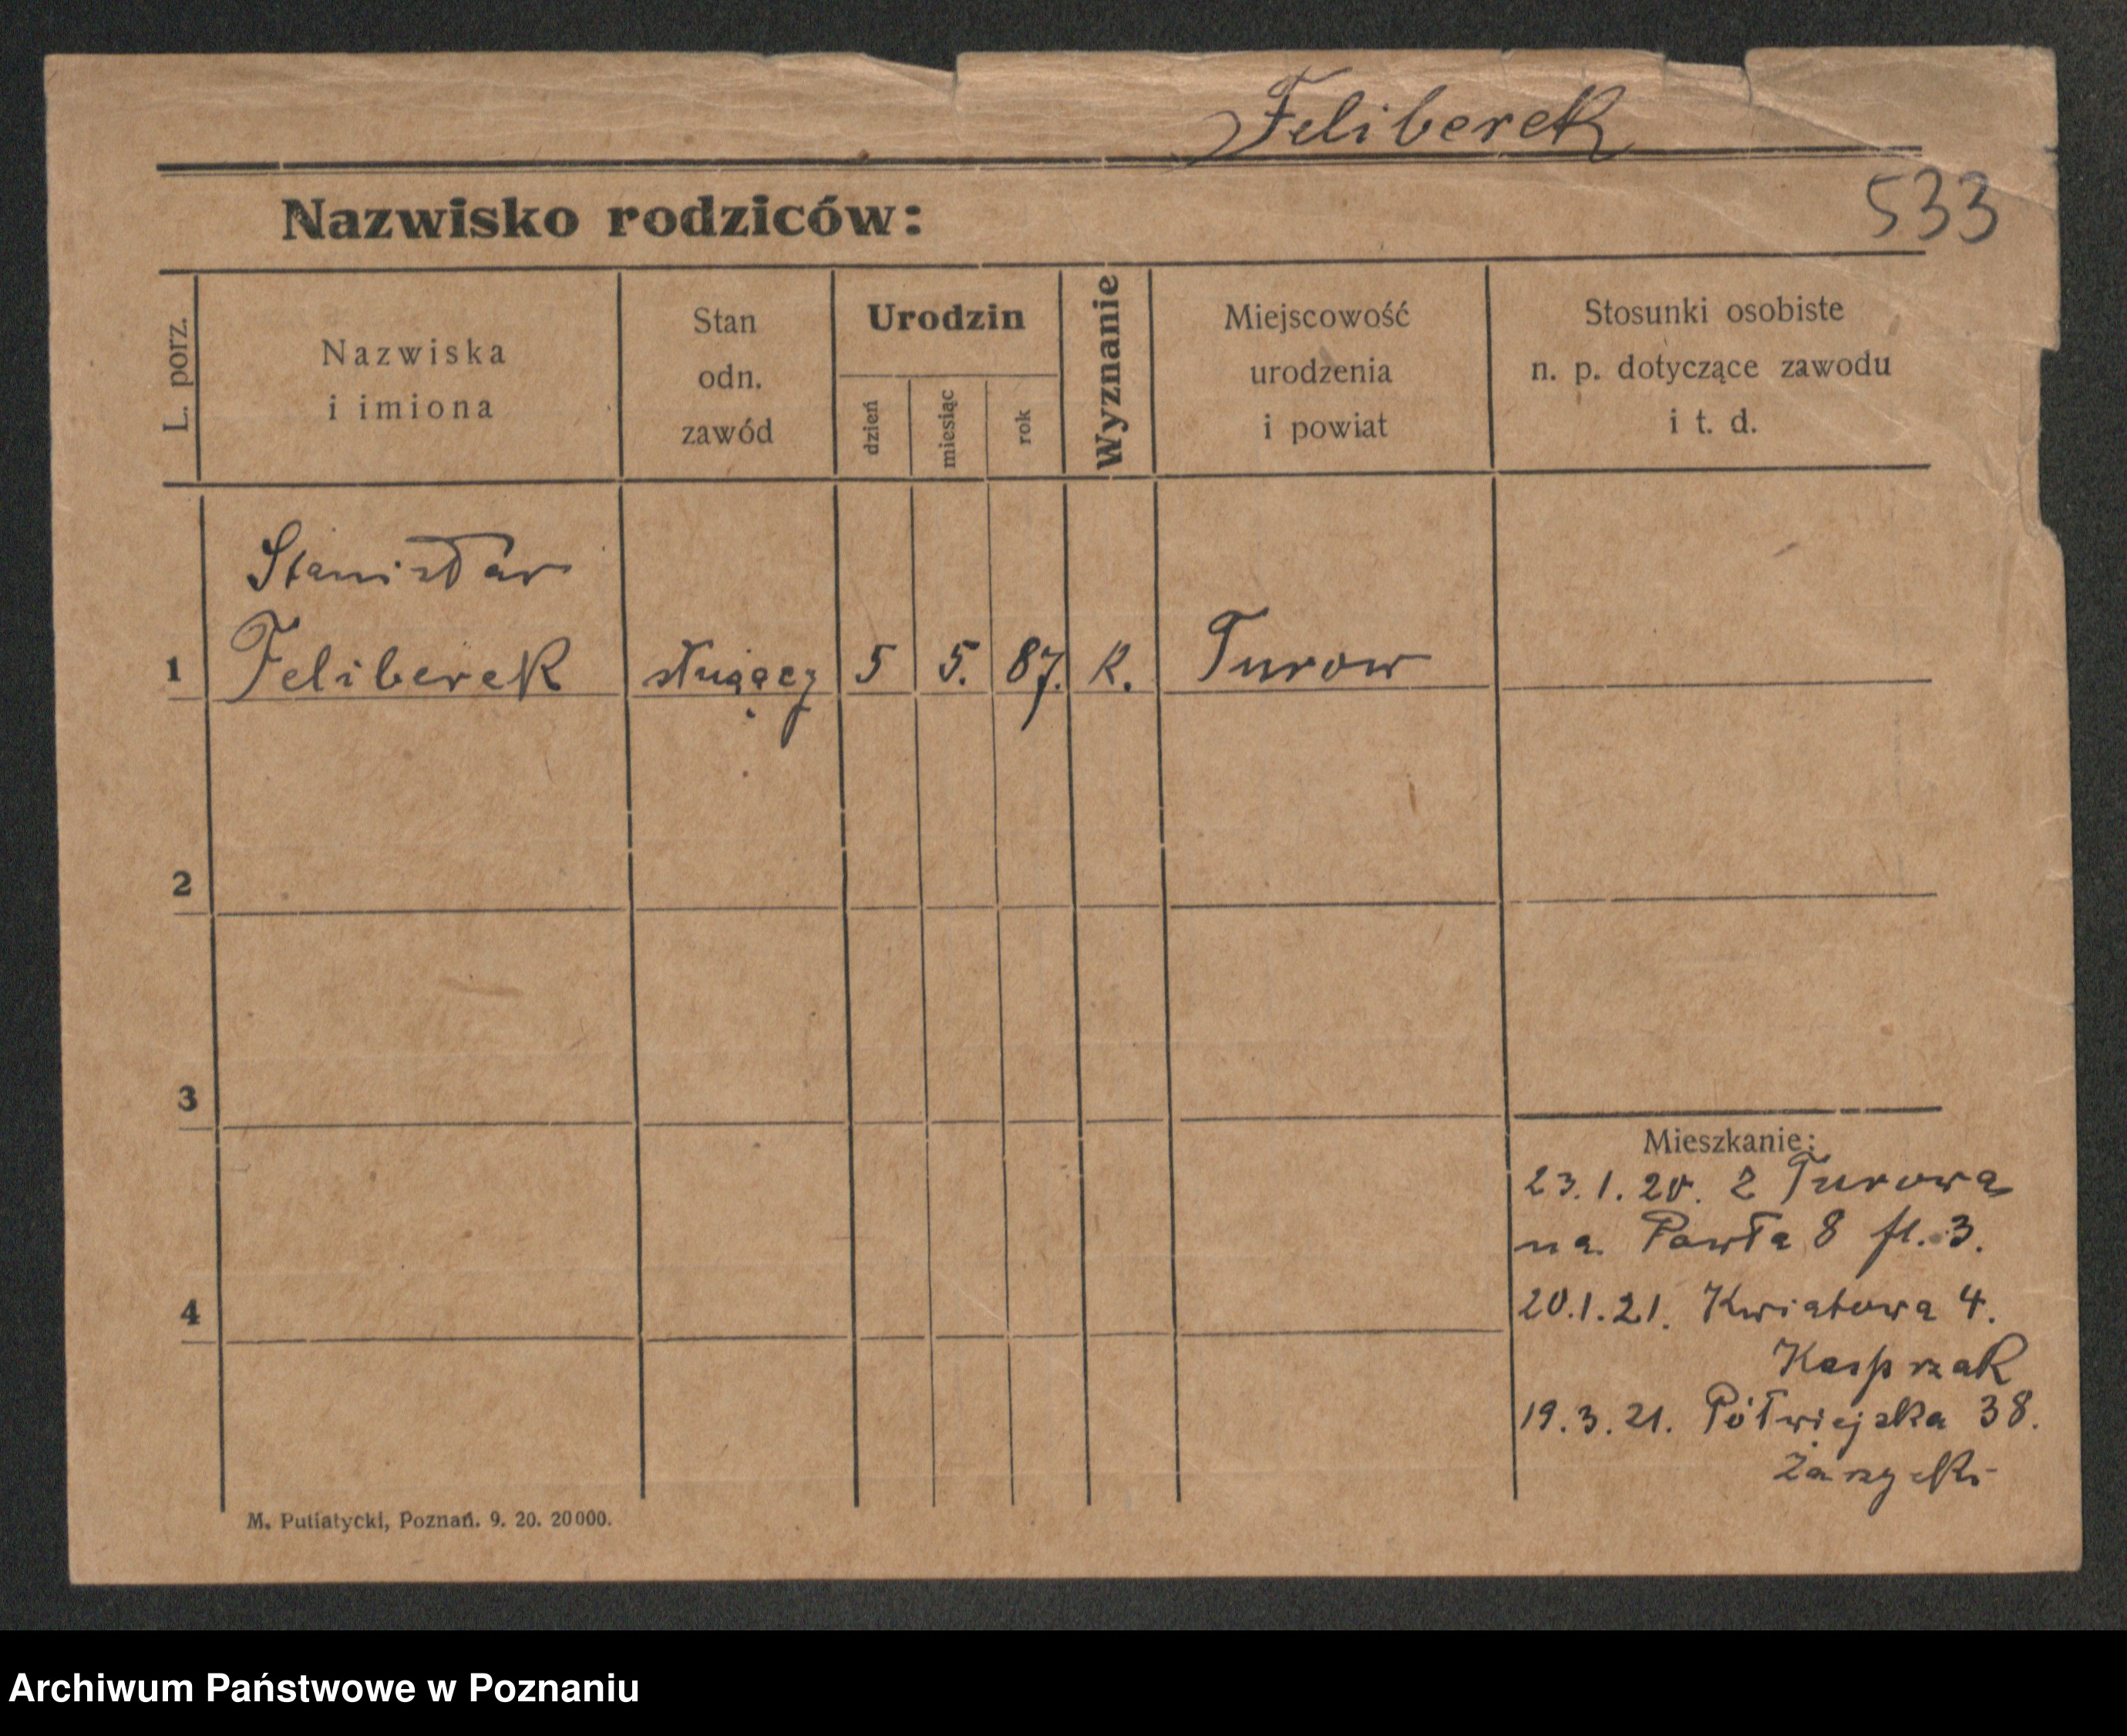 Feliberek
533
Nazwisko rodziców:
L. porz.
Nazwiska
i imiona
Stan
odn.
zawód
Urodzin
dzień
miesiąc
rok
Wyznanie
Miejscowość
urodzenia
i powiat
Stosunki osobiste
n. p. dotyczące zawodu
i t. d.
Stanisław
1 Feliberek służący 5 5. 87. K. Turow
2
3
4
Mieszkanie:
23.1.20. z Turowa
na Pawła 8 fl. 3.
20.1.21. Kwiatowa 4.
Kasprzak
19.3.21. Półwiejska 38.
M. Putiatycki, Poznań. 9. 20. 20000.
Archiwum Państwowe w Poznaniu